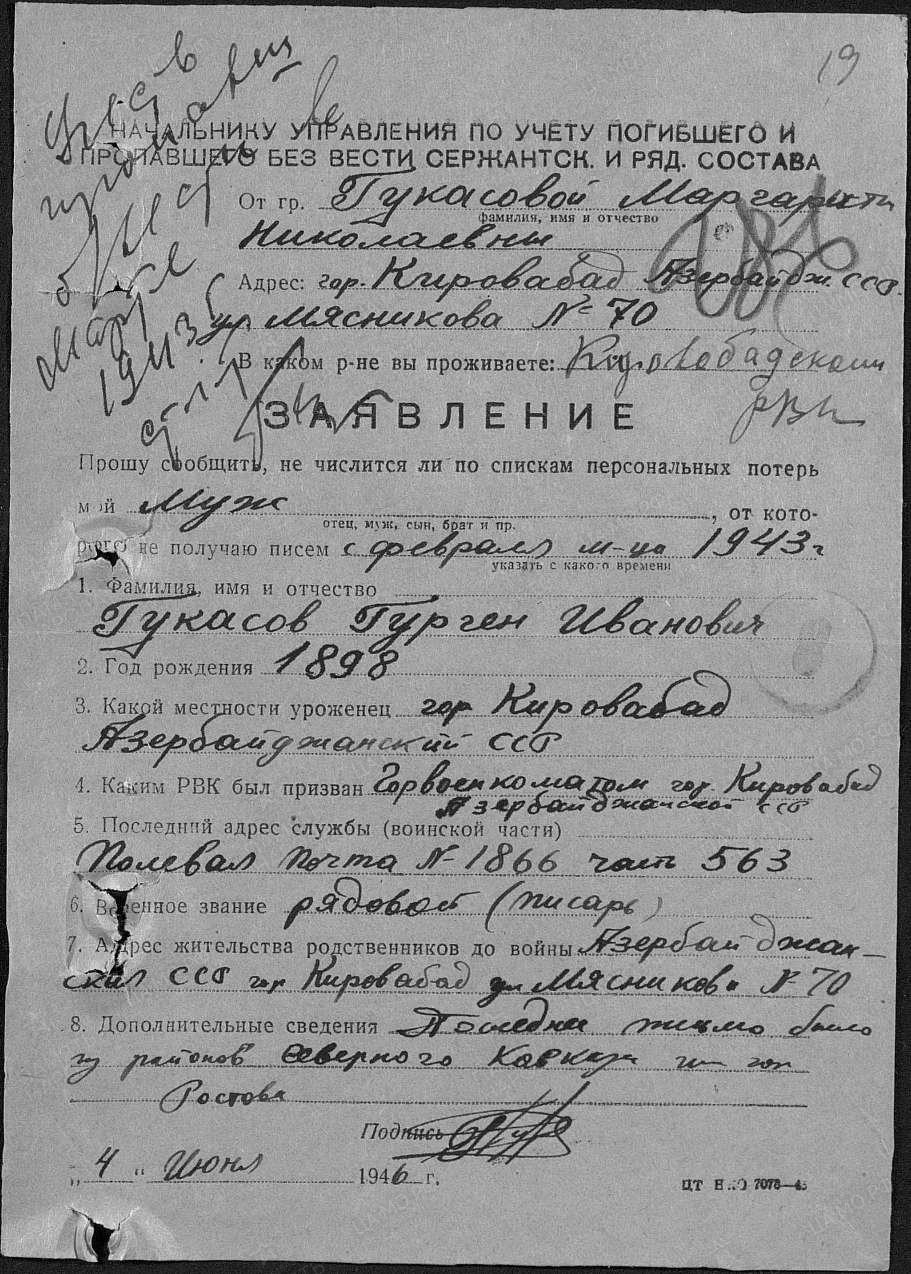 19
Учесть
пропавш
в марте
1943 г
НАЧАЛЬНИКУ УПРАВЛЕНИЯ ПО УЧЕТУ ПОГИБШЕГО И
ПРОПАВШЕГО БЕЗ ВЕСТИ СЕРЖАНТСК. И РЯД. СОСТАВА
От гр. Гукасовой Маргариты
фамилия, имя и отчество
Николаевны
Адрес: гор. Кировабад Азербайдж. ССР.
ул Мясникова № 70
В каком р-не вы проживаете: Кировобадским
РВК
ЗАЯВЛЕНИЕ
Прошу сообщить, не числится ли по спискам персональных потерь
мой Муж, от кото-
отец, муж, сын, брат и пр.
рого не получаю писем с февраля м-ца 1943 г
указать с какого времени
1. Фамилия, имя и отчество
Гукасов Гурген Иванович
2. Год рождения 1898
3. Какой местности уроженец гор Кировабад
Азербайджанский ССР
4. Каким РВК был призван Горвоенкоматом гор. Кировабад
Азербайджанской ССР
5. Последний адрес службы (воинской части)
Полевая почта № 1866 часть 563
6. Военное звание рядовой (писарь)
7. Адрес жительства родственников до войны Азербайджан-
ская ССР гор Кировабад ул Мясникова № 70
8. Дополнительные сведения Последни письмо было
из районов Северного Кавказа гор
Ростова
Подпись
„4“ Июня 1946 г.